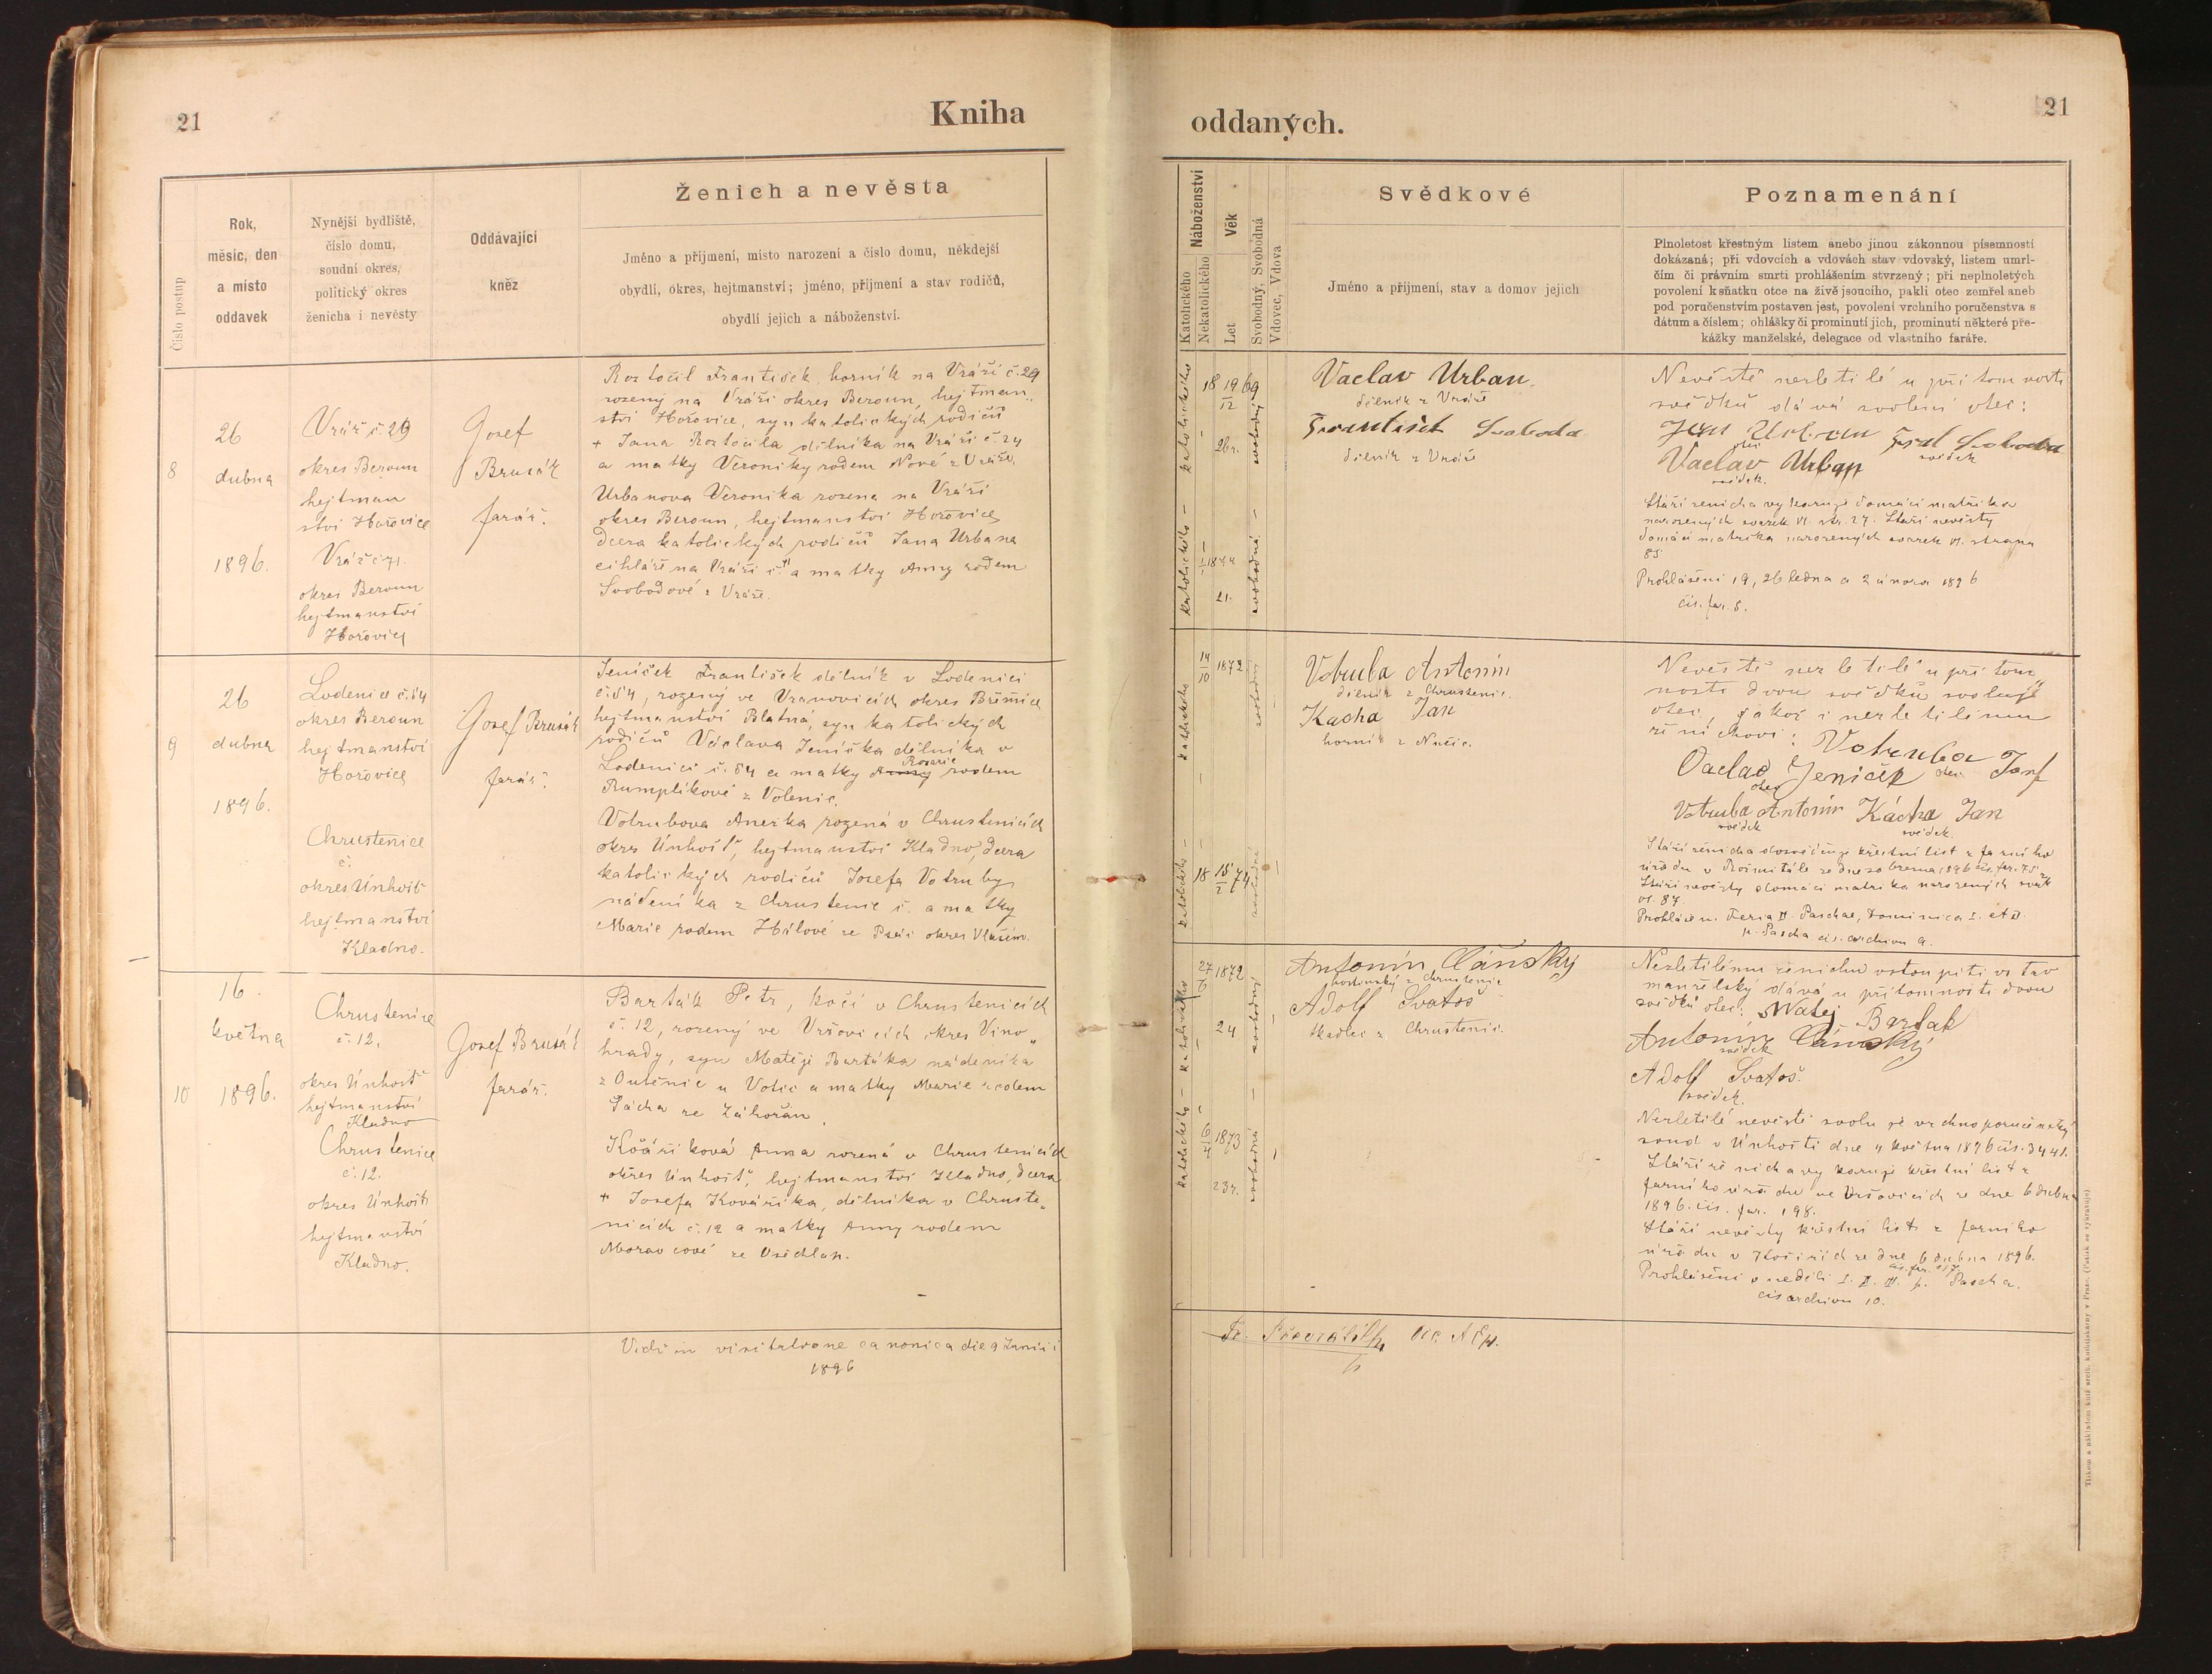 21
Kniha
Číslo postup
Rok,
měsíc, den
a místo
oddavek
Nynější bydliště,
číslo domu,
soudní okres,
politický okres
ženicha i nevěsty
Oddávající
kněz
Ženich a nevěsta
Jméno a příjmení, místo narození a číslo domu, někdejší
obydlí, okres, hejtmanství; jméno, příjmení a stav rodičů,
obydlí jejich a náboženství.
8
26
dubna
1896.
Vráž č. 29
okres Beroun
hejtman
ství Hořovice
Vráž č 71.
okres Beroun
hejtmanství
Hořovice
Josef
Brusák
farář.
Roztočil František, horník na Vráži č. 29
rozený na Vráži okres Beroun, hejtman„
ství Hořovice, syn katolických rodičů
+ Jana Roztočila dělníka na Vráži č. 24
a matky Veroniky rodem Nové z Vráže.
Urbanova Veronika rozena na Vráži
okres Beroun, hejtmanství Hořovice
dcera katolických rodičů Jana Urbana
cihláře na Vráži č. a matky Anny rodem
Svobodové z Vráže.
9
26
dubna
1896.
Lodenice č. 84
okres Beroun
hejtmanství
Hořovice
Chrustenice
č.
okres Únhošť
hejtmanství
Kladno.
Josef Brusák
farář.
Jeníček František dělník v Lodenici
č. 84, rozený ve Vranovicích okres Březnice
hejtmanství Blatná, syn katolických
rodičů Václava Jeníčka dělníka v
Lodenici č. 84 a matky Anny Rosarie rodem
Rumplíkové z Volenic.
Votrubova Anežka rozená v Chrustenicích
okres Únhošť, hejtmanství Kladno, dcera
katolických rodičů Josefa Votruby
nádeníka z Chrustenic č. a matky
Marie rodem Hálové ze Psáč okres Vlašim.
10
16.
května
1896.
Chrustenice
č. 12.
okres Únhošť
hejtmanství
Kladno
Chrustenice
č. 12.
okres Únhošť
hejtmanství
Kladno.
Josef Brusák
farář.
Barták Petr, kočí v Chrustenicích
č. 12, rozený ve Vršovicích okres Vino„
hrady, syn Matěje Bartáka nádeníka
z Outěnic u Votic a matky Marie rodem
Pácha ze Záhořan.
Kováříková Anna rozená v Chrustenicích
okres Únhošť, hejtmanství Kladno, dcera
+ Josefa Kováříka, dělníka v Chruste„
nicích č. 12 a matky Anny rodem
Moravcové ze Všechlap.
Vidi in visitatione canonica die 9 Junii
1896
oddaných.
21
Náboženství
Katolického
Nekatolického
Věk
Let
Svobodný, Svobodná
Vdovec, Vdova
Svědkové
Jméno a příjmení, stav a domov jejich
Poznamenání
Plnoletost křestným listem anebo jinou zákonnou písemností
dokázaná; při vdovcích a vdovách stav vdovský, listem umrl-
čím či právním smrti prohlášením stvrzený; při neplnoletých
povolení k sňatku otce na živě jsoucího, pakli otec zemřel aneb
pod poručenstvím postaven jest, povolení vrchního poručenstva s
dátum a číslem; ohlášky či prominutí jich, prominutí některé pře-
kážky manželské, delegace od vlastního faráře.
katolického
18 19/12 69
26 r.
svobodný
katolického
1/1 1874
21.
svobodná
Vaclav Urban
dělník z Vráže
František Svoboda
dělník z Vráže
Nevěstě nezletilé u přítomnosti
svědků dává svolení otec:
Jan Urban Frant Svoboda
otec svědek
Vaclav Urban
svědek.
Stáří ženicha vykazuje domácí matrika
narozených svazek VI. str. 27. Stáří nevěsty
domácí matrika narozených svazek VI. strana
85.
Prohlášeni 19, 26 ledna a 2 února 1896
čís. far. 8.
katolického
14/10 1872
svobodný
katolického
18 15/2 74
svobodná
Votruba Antonín
dělník z Chrustenic.
Kacha Jan
horník z Nučic.
Nevěstě nezletilé u přítom„
nosti dvou svědků svoluje
otec, jakož i nezletilému
ženichovi: Votruba
Václav Jeniček otec Josef
otec
Votruba Antonín Kácha Jan
svědek svědek.
Stáří ženicha dosvědčuje křestní list z farního
úřadu v Rožmitále ze dne 20 března 1896 čís. far. 75
Stáří nevěsty domácí matrika narozených svazek
VI. 87.
Prohlášeni Feria II. Paschae, Dominica I. et II.
p. Pascha čís. archivu 9.
katolického
27/6 1872
24
svobodný
katolického
6/4 1873
23 r.
svobodná
Antonín Cánský
hostinský z Chrustenic
Adolf Svatoš
tkadlec z Chrustenic.
Nezletilému ženichu vstoupiti v stav
manželský dává u přítomnosti dvou
svědků otec: Matěj Barták
Antonín Cánský
svědek
Adolf Svatoš.
svědek.
Nezletilé nevěstě svoluje vrchnoporučenský
soud v Únhošti dne 4 května 1896 čís. 3441.
Stáří ženicha vykazuje křestní list z
farního úřadu ve Vršovicích ze dne 6 dubna
1896. čís. far. 198.
Stáří nevěsty křestní list z farního
úřadu v Košířích ze dne 6 dubna 1896.
Prohlášeni v neděli I. II. III. p. Pascha.
čís archivu 10.
Tiskem a nákladem kníž. arcib. knihtiskárny v Praze. (Padělek se vyhražuje)